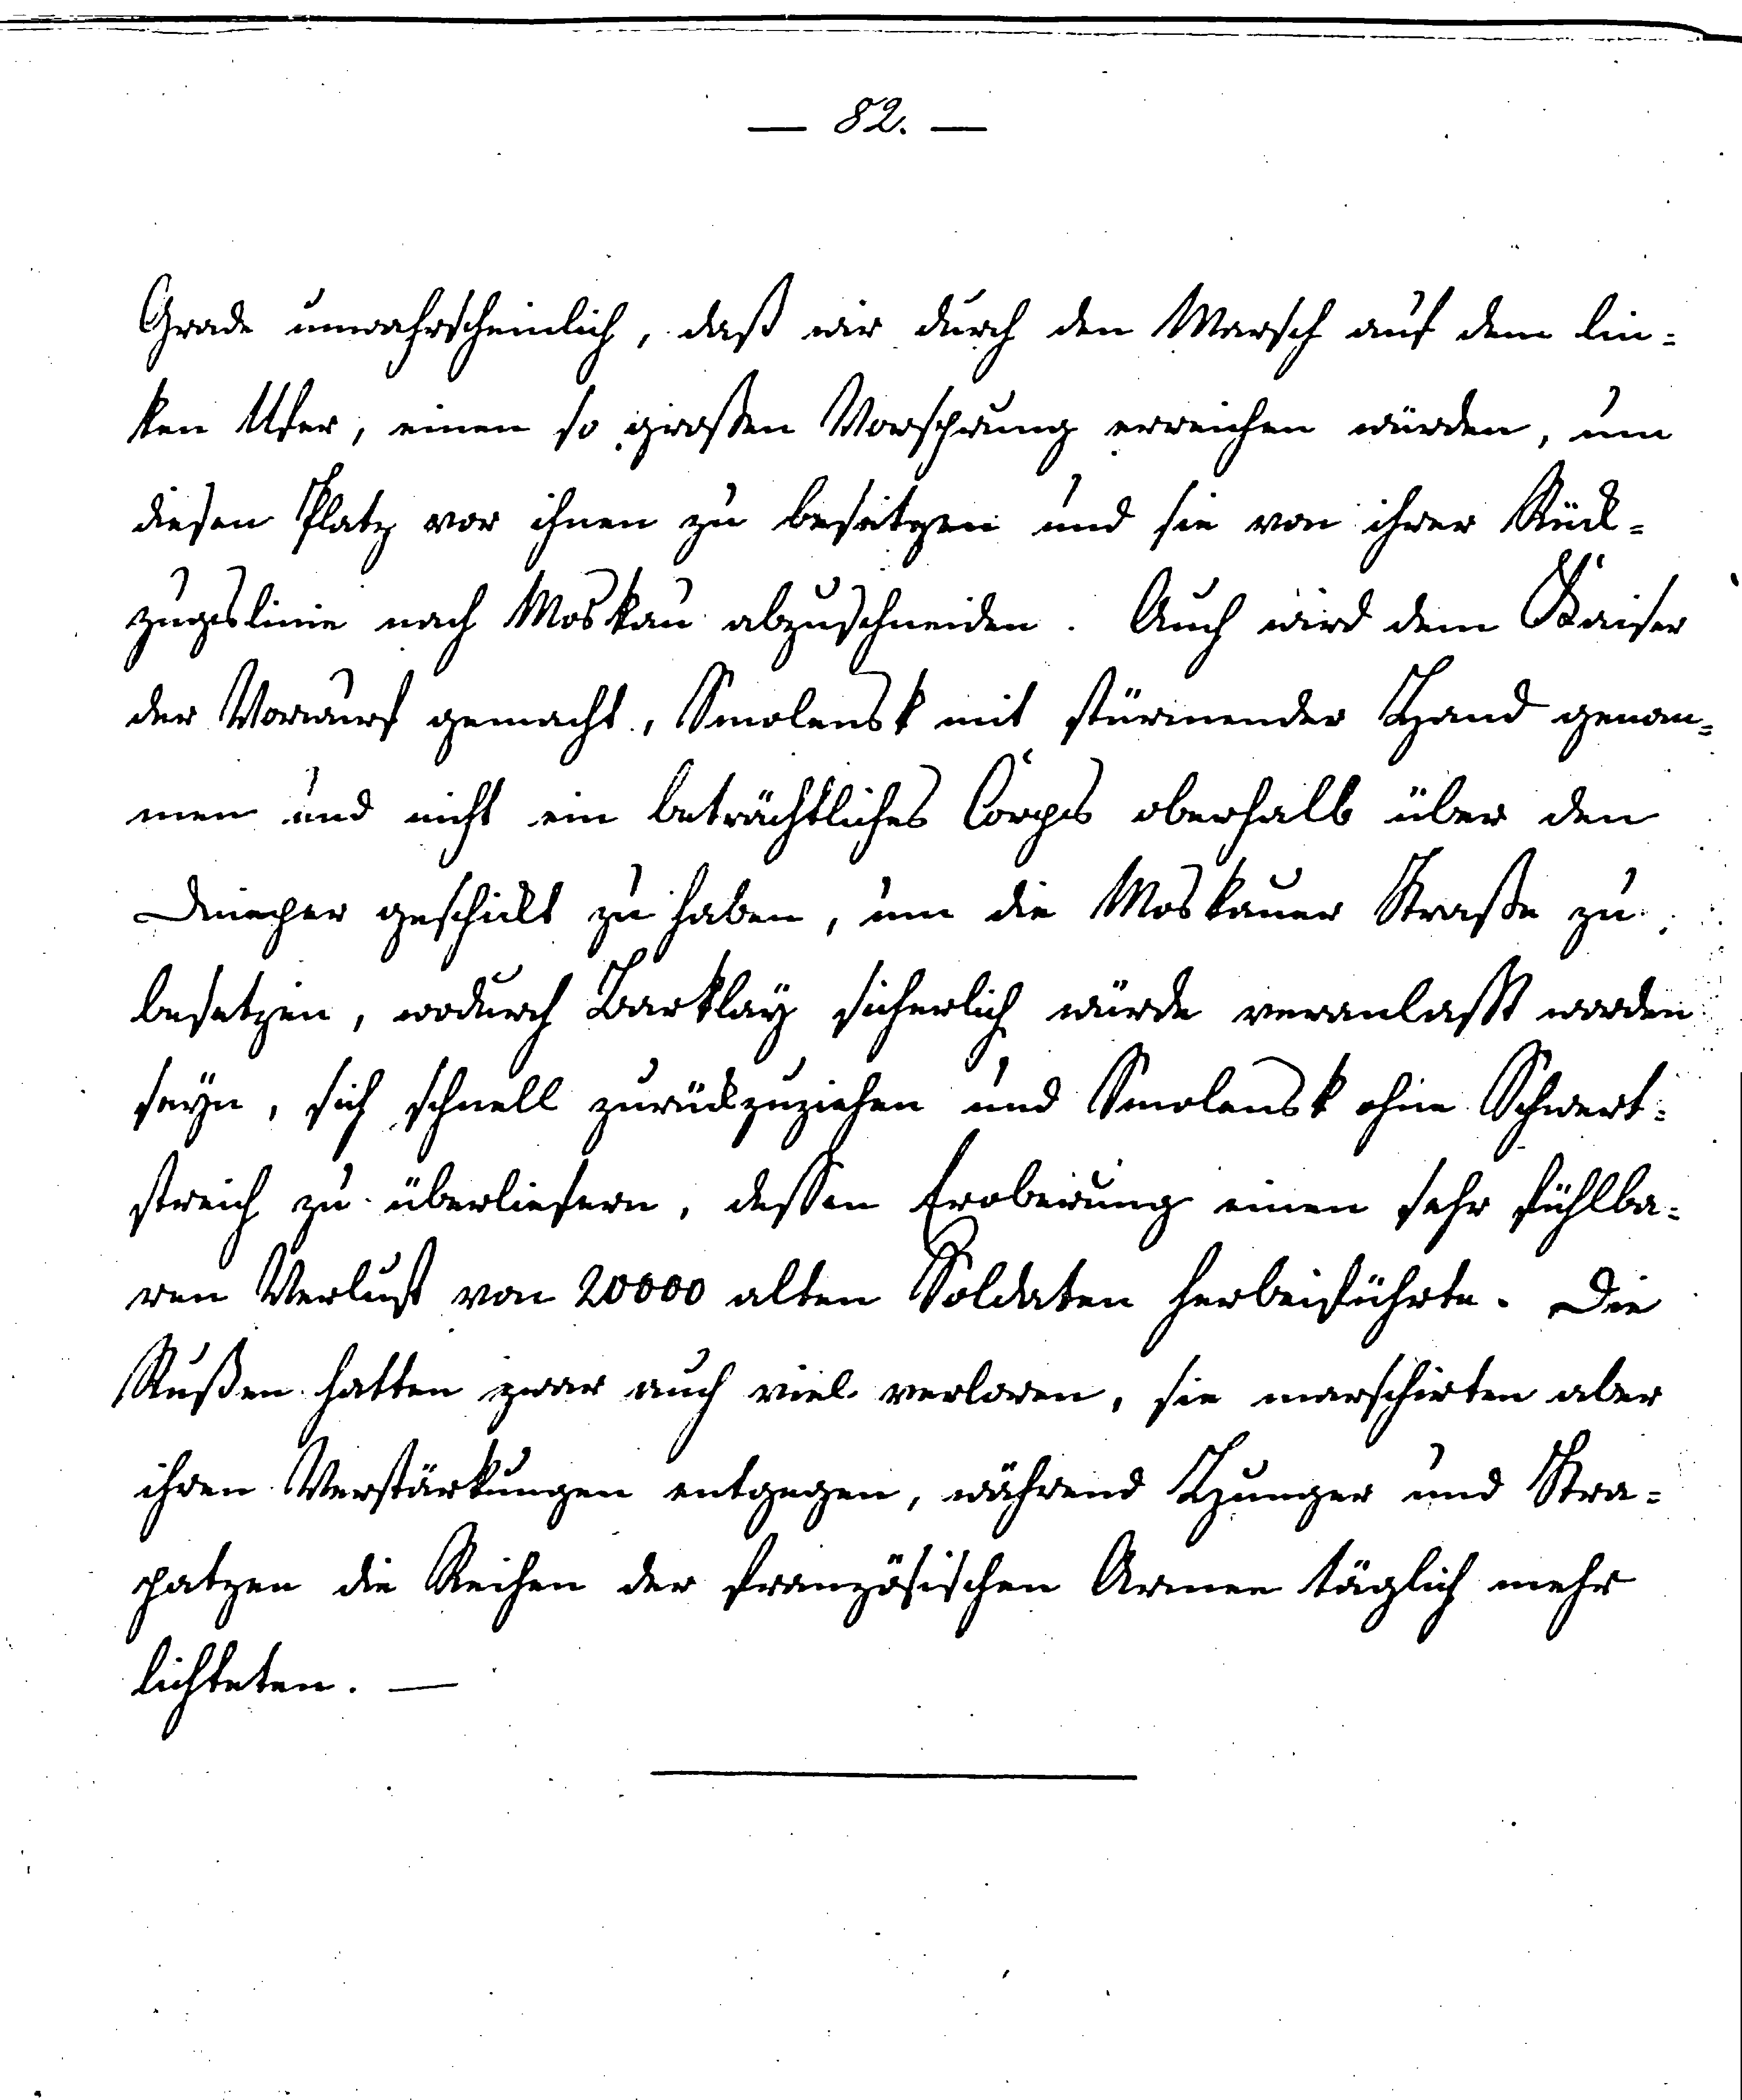 — 82. —
Grade unwahrscheinlich, daß wir durch den Marsch auf dem lin-
ken Ufer, einen so großen Vorsprung erreichen würden, um
diesen Platz vor ihnen zu besetzen und sie von ihrer Rück-
zugslinie nach Moskau abzuschneiden. Auch wird dem Kaiser
der Vorwurf gemacht, Smolensk mit stürmender Hand genom-
men und nicht ein beträchtliches Corps oberhalb über den
Dnieper geschickt zu haben, um die Moskauer Straße zu
besetzen, wodurch Barklay sicherlich würde veranlasst worden
seyn, sich schnell zurückzuziehen und Smolensk ohne Schwert-
streich zu überliefern, dessen Eroberung einen sehr fühlba-
ren Verlust von 20000 alten Soldaten herbeiführte. Die
Rußen hatten zwar auch viel verloren, sie marschirten aber
ihren Verstärkungen entgegen, während Hunger und Stra-
patzen die Reihen der französischen Armee täglich mehr
lichteten. —